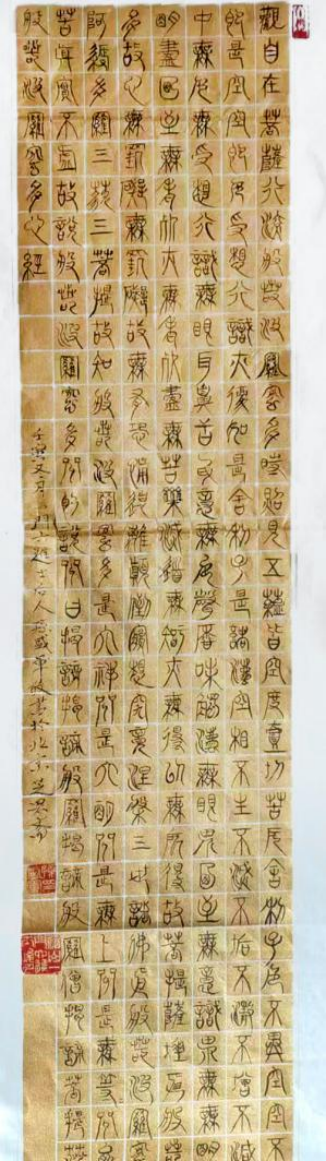 觀自在菩薩行深般若波羅蜜多時照見五蘊皆空度壹切苦厄舍利子色不異空空不
即是空空即是受想行識亦復如是舍利子是諸法空相不生不滅不垢不淨不增不減
中無色無受想行識無眼耳鼻舌身意無色聲香味觸法無眼界乃至無意識界無無明
明盡乃至無老死亦無老死盡無苦集滅道無智亦無得以無所得故菩提薩埵依般若
多故心無罣礙無罣礙故無有恐怖遠離顛倒夢想究竟涅槃三世諸佛依般若波羅蜜
阿耨多羅三藐三菩提故知般若波羅蜜多是大神咒是大明咒是無上咒是無等等咒能
苦真實不虛故說般若波羅蜜多咒即說咒曰揭諦揭諦般羅揭諦般羅僧揭諦菩提
般若波羅蜜多心經